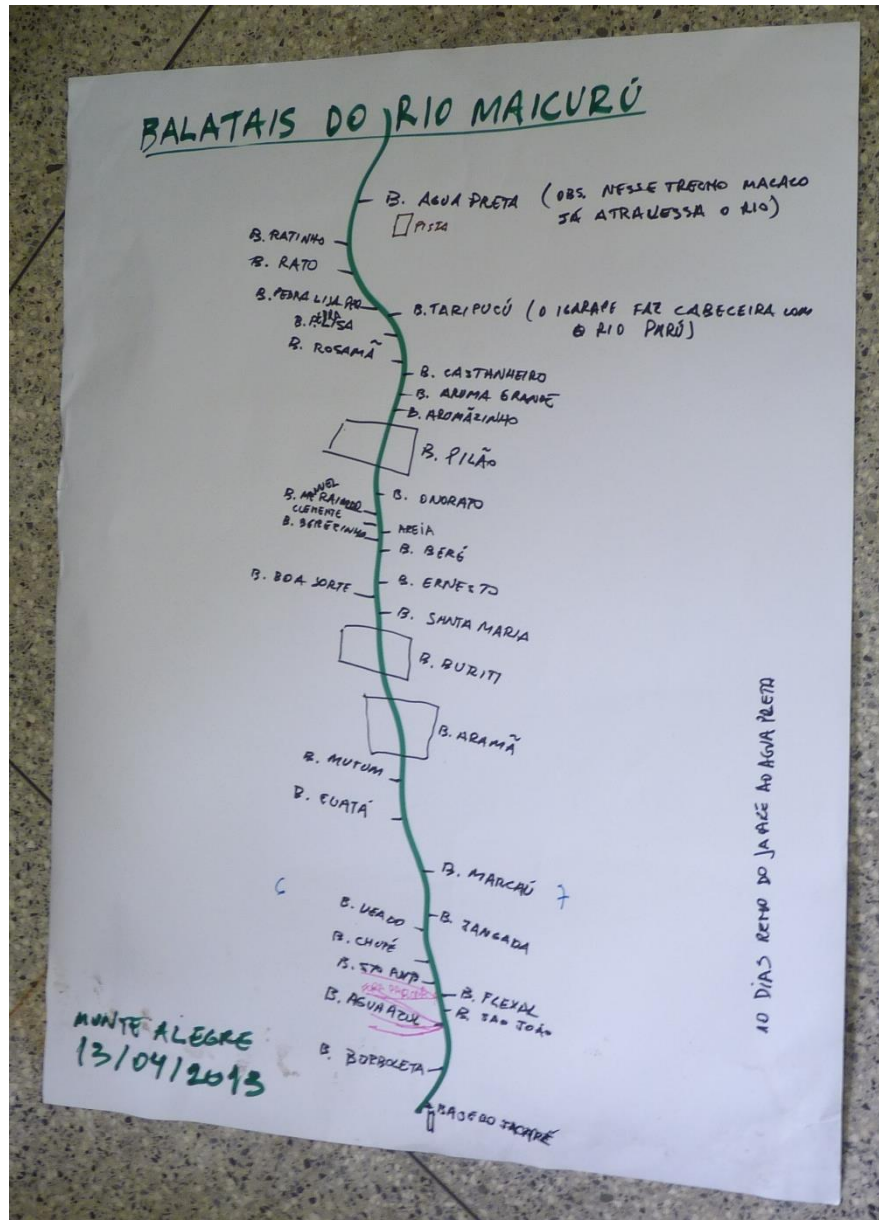 BALATAIS DO RIO MAICURÚ
B. AGUA PRETA (OBS. NESSE TRECHO MACACO
JÁ ATRAVESSA O RIO)
PISTA
B. RATINHO
B. RATO
B. PEDRA LISA
B. TARIPUCÚ (O IGARAPE FAZ CABECEIRA COM
O RIO PARÚ)
B. ROSAMÃ
B. CASTANHEIRO
B. AROMA GRANDE
B. AROMÃZINHO
B. PILÃO
B. ONORATO
B. RAIMUNDO
CLEMENTE
B. BEREZINHO
AREIA
B. BERÉ
B. BOA SORTE
B. ERNESTO
B. SANTA MARIA
B. BURITI
B. ARAMÃ
B. MUTUM
B. CUATÁ
B. MARCAÚ
6
7
B. VEADO
B. ZANGADA
B. CHUPÉ
B. STO ANTO
B. FLEXAL
B. AGUA AZUL
B. SÃO JOÃO
B. BORBOLETA
BASE DO JACARÉ
MONTE ALEGRE
13/04/2013
10 DIAS REMO DO JACARÉ AO AGUA PRETA